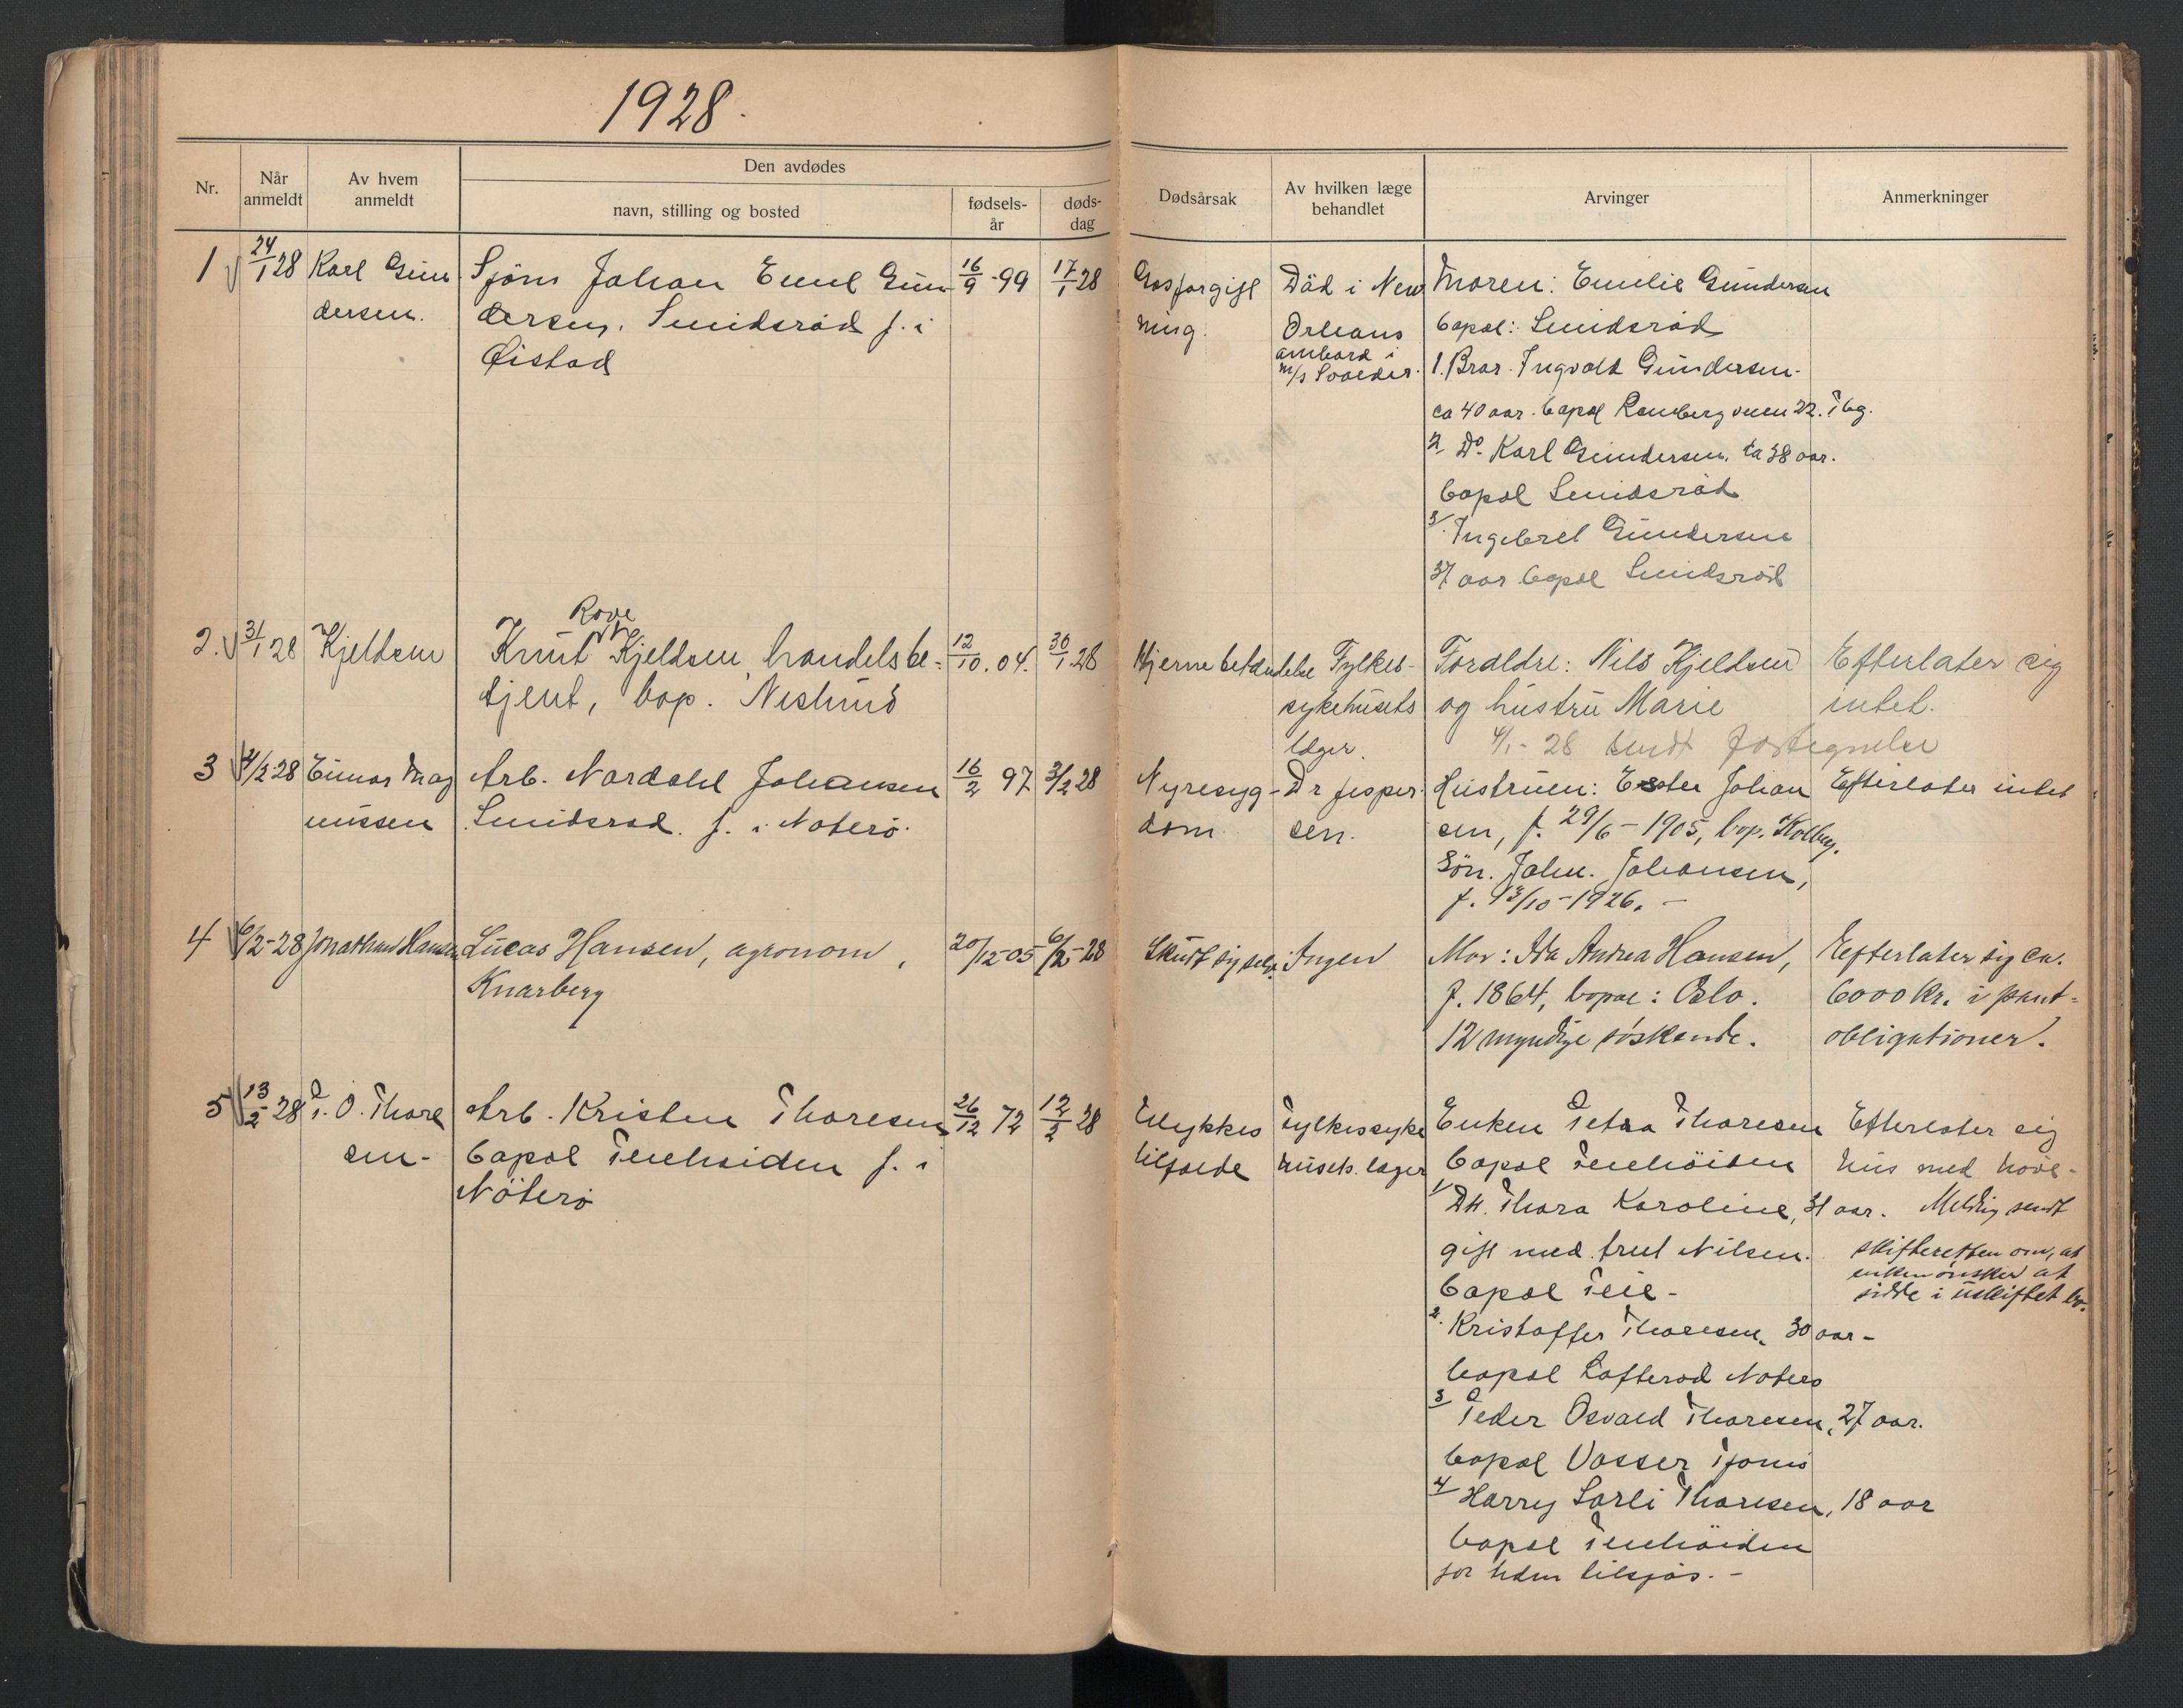 1928.
Nr.
Når anmeldt
Av hvem anmeldt
Den avdødes
navn, stilling og bosted
fødsels-år
døds-dag
Dødsårsak
Av hvilken læge behandlet
Arvinger
Anmerkninger
1 24/1 28 Karl Gun
dersen.
Sjöm Johan Emil Gun
dersen, Smidsröd f. i
Öistad
16/9 -99
17/1 28
Gasforgift
ning.
Död i New
Orleans
ombord i
m/s
Moren: Emilie Gundersen
bopæl: Smidsröd
1. Bror. Ingvald Gundersen.
ca 40 aar. bopæl Ramberg veien 22. Tbg.
2 Do Karl Gundersen. ca 38 aar.
bopæl Smidsröd
3/ Ingebret Gundersen
37 aar bopæl Smidsröd
2. 31/1 28 Kjeldsen
Rove
Knut Kjeldsen, handelsbe-
tjent, bop. Neslund
12/10. 04.
30/1 28
Hjernebetændelse
Fylkes-
sykehusets
læger.
Foraldre: Nils Kjeldsen
og hustru Marie
Efterlater sig
intet.
4/1 - 28 sendt fortegnelse
3 4/2 28 Einar Mag
nussen
Arb. Nordahl Johansen
Smidsröd. f. i Nøterö.
16/2 97
3/2 28
Nyresyg-
dom.
Dr Jesper-
sen.
Hustruen: Ester Johan
sen, f. 29/6 - 1905, bop. Kolberg.
Sön. John. Johansen,
f. 13/10 - 1926. -
Efterlater intet
4 6/2-28 Jonathan Hansen
Lucas Hansen, agronom,
Knarberg
20/12-05
6/2-28
Skudt sig selv.
Ingen
Mor: Ida Andrea Hansen,
f. 1864, bopæl: Oslo.
12 myndige söskende.
Efterlater sig ca.
6000 kr. i pant-
obligationer.
5 13/2 28 P. O. Thore
sen-
Arb. Kristen Thoresen
bopæl Teiehøiden f. i
Nöterö
26/12 72
12/2 28
Ulykkes
tilfælde
Fylkessyke
husets. læger
Enken Petra Thoresen
bopæl Teiehöiden
1/ Dtr. Thora Karoline, 31 aar.
gift med Nilsen.
bopæl Teie-
2. Kristoffer Thoresen, 30 aar-
bopæl Lofteröd Nöterö
3 Peder Osvald Thoresen, 27 aar.
bopæl Vasser Tjömö
4/ Harry Sarli Thoresen, 18 aar
bopæl Teiehöiden
for tiden tilsjös. -
Efterlater sig
hus med have-
Melding sendt
skifteretten om, at
enken önsker at
sidde i uskiftet bo.